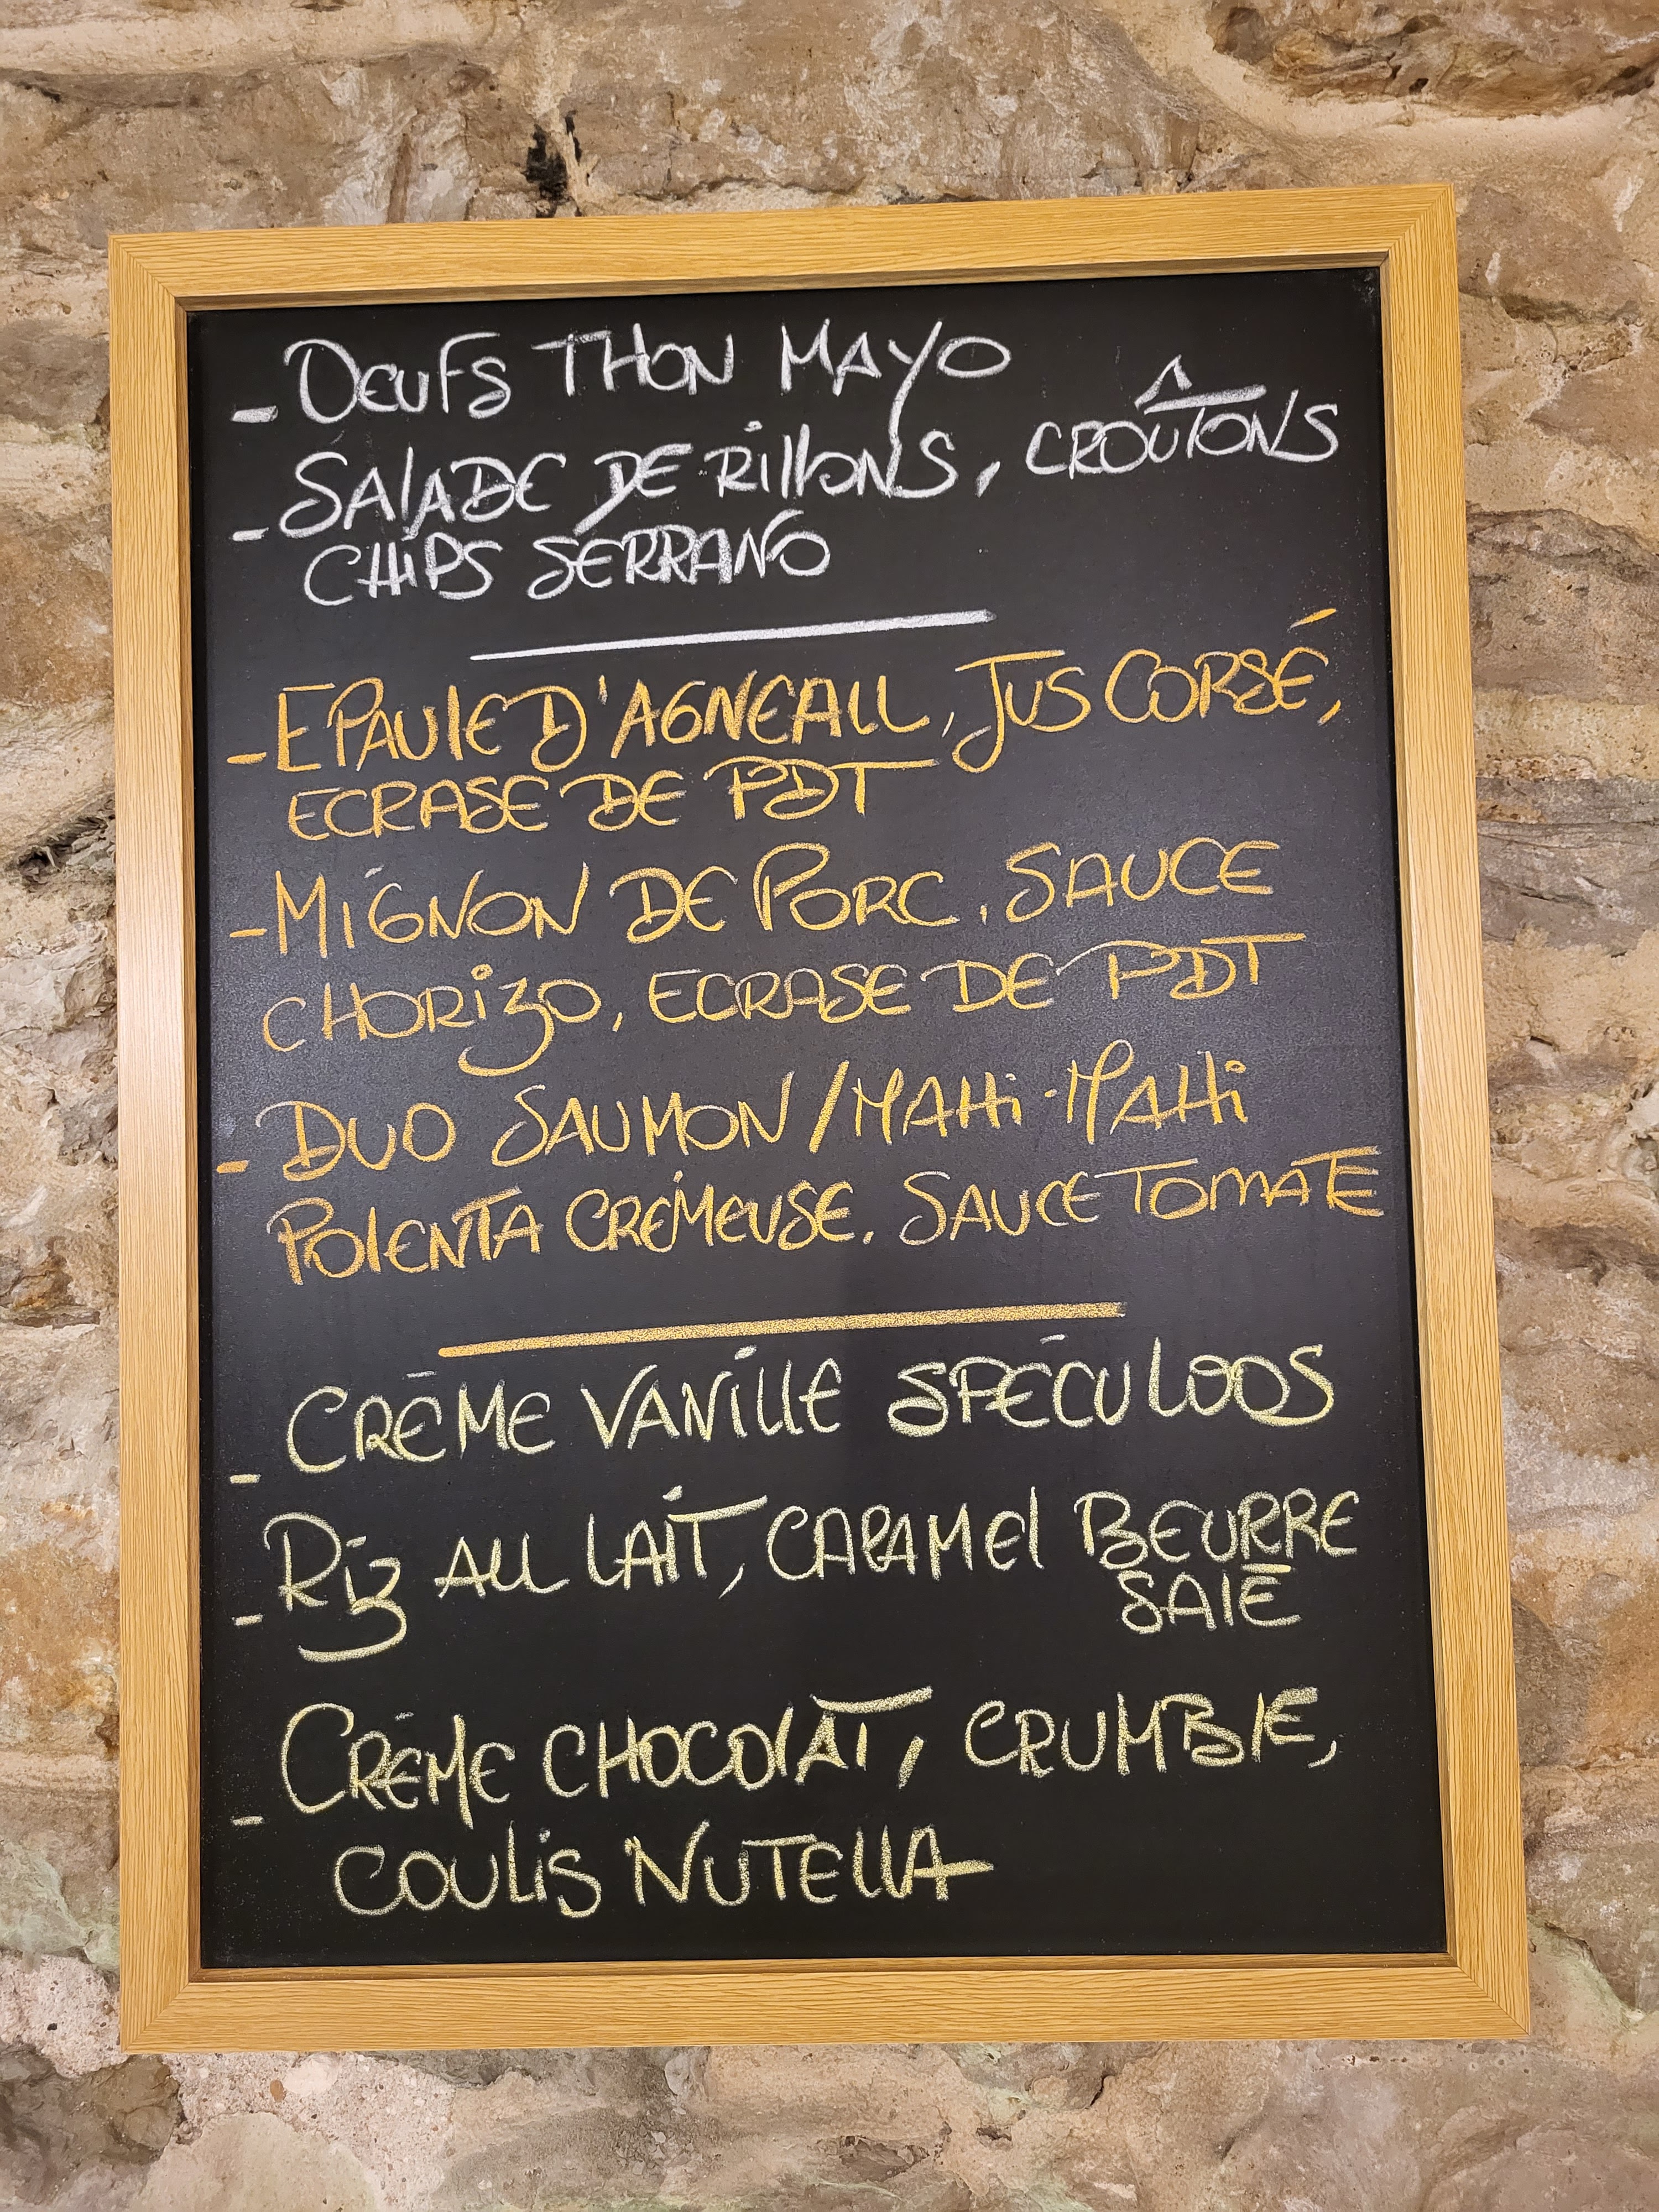 - OEUFS THON MAYO
- SALADE DE RILLONS, CROÛTONS
CHIPS SERRANO
- EPAULE D'AGNEAU, JUS CORSÉ,
ECRASE DE PDT
- MIGNON DE PORC, SAUCE
CHORIZO, ECRASE DE PDT
- DUO SAUMON / MAHI-MAHI
POLENTA CRÉMEUSE, SAUCE TOMATE
- CRÈME VANILLE SPÉCULOOS
- RIZ AU LAIT, CARAMEL BEURRE
SALÉ
- CRÈME CHOCOLAT, CRUMBLE,
COULIS NUTELLA